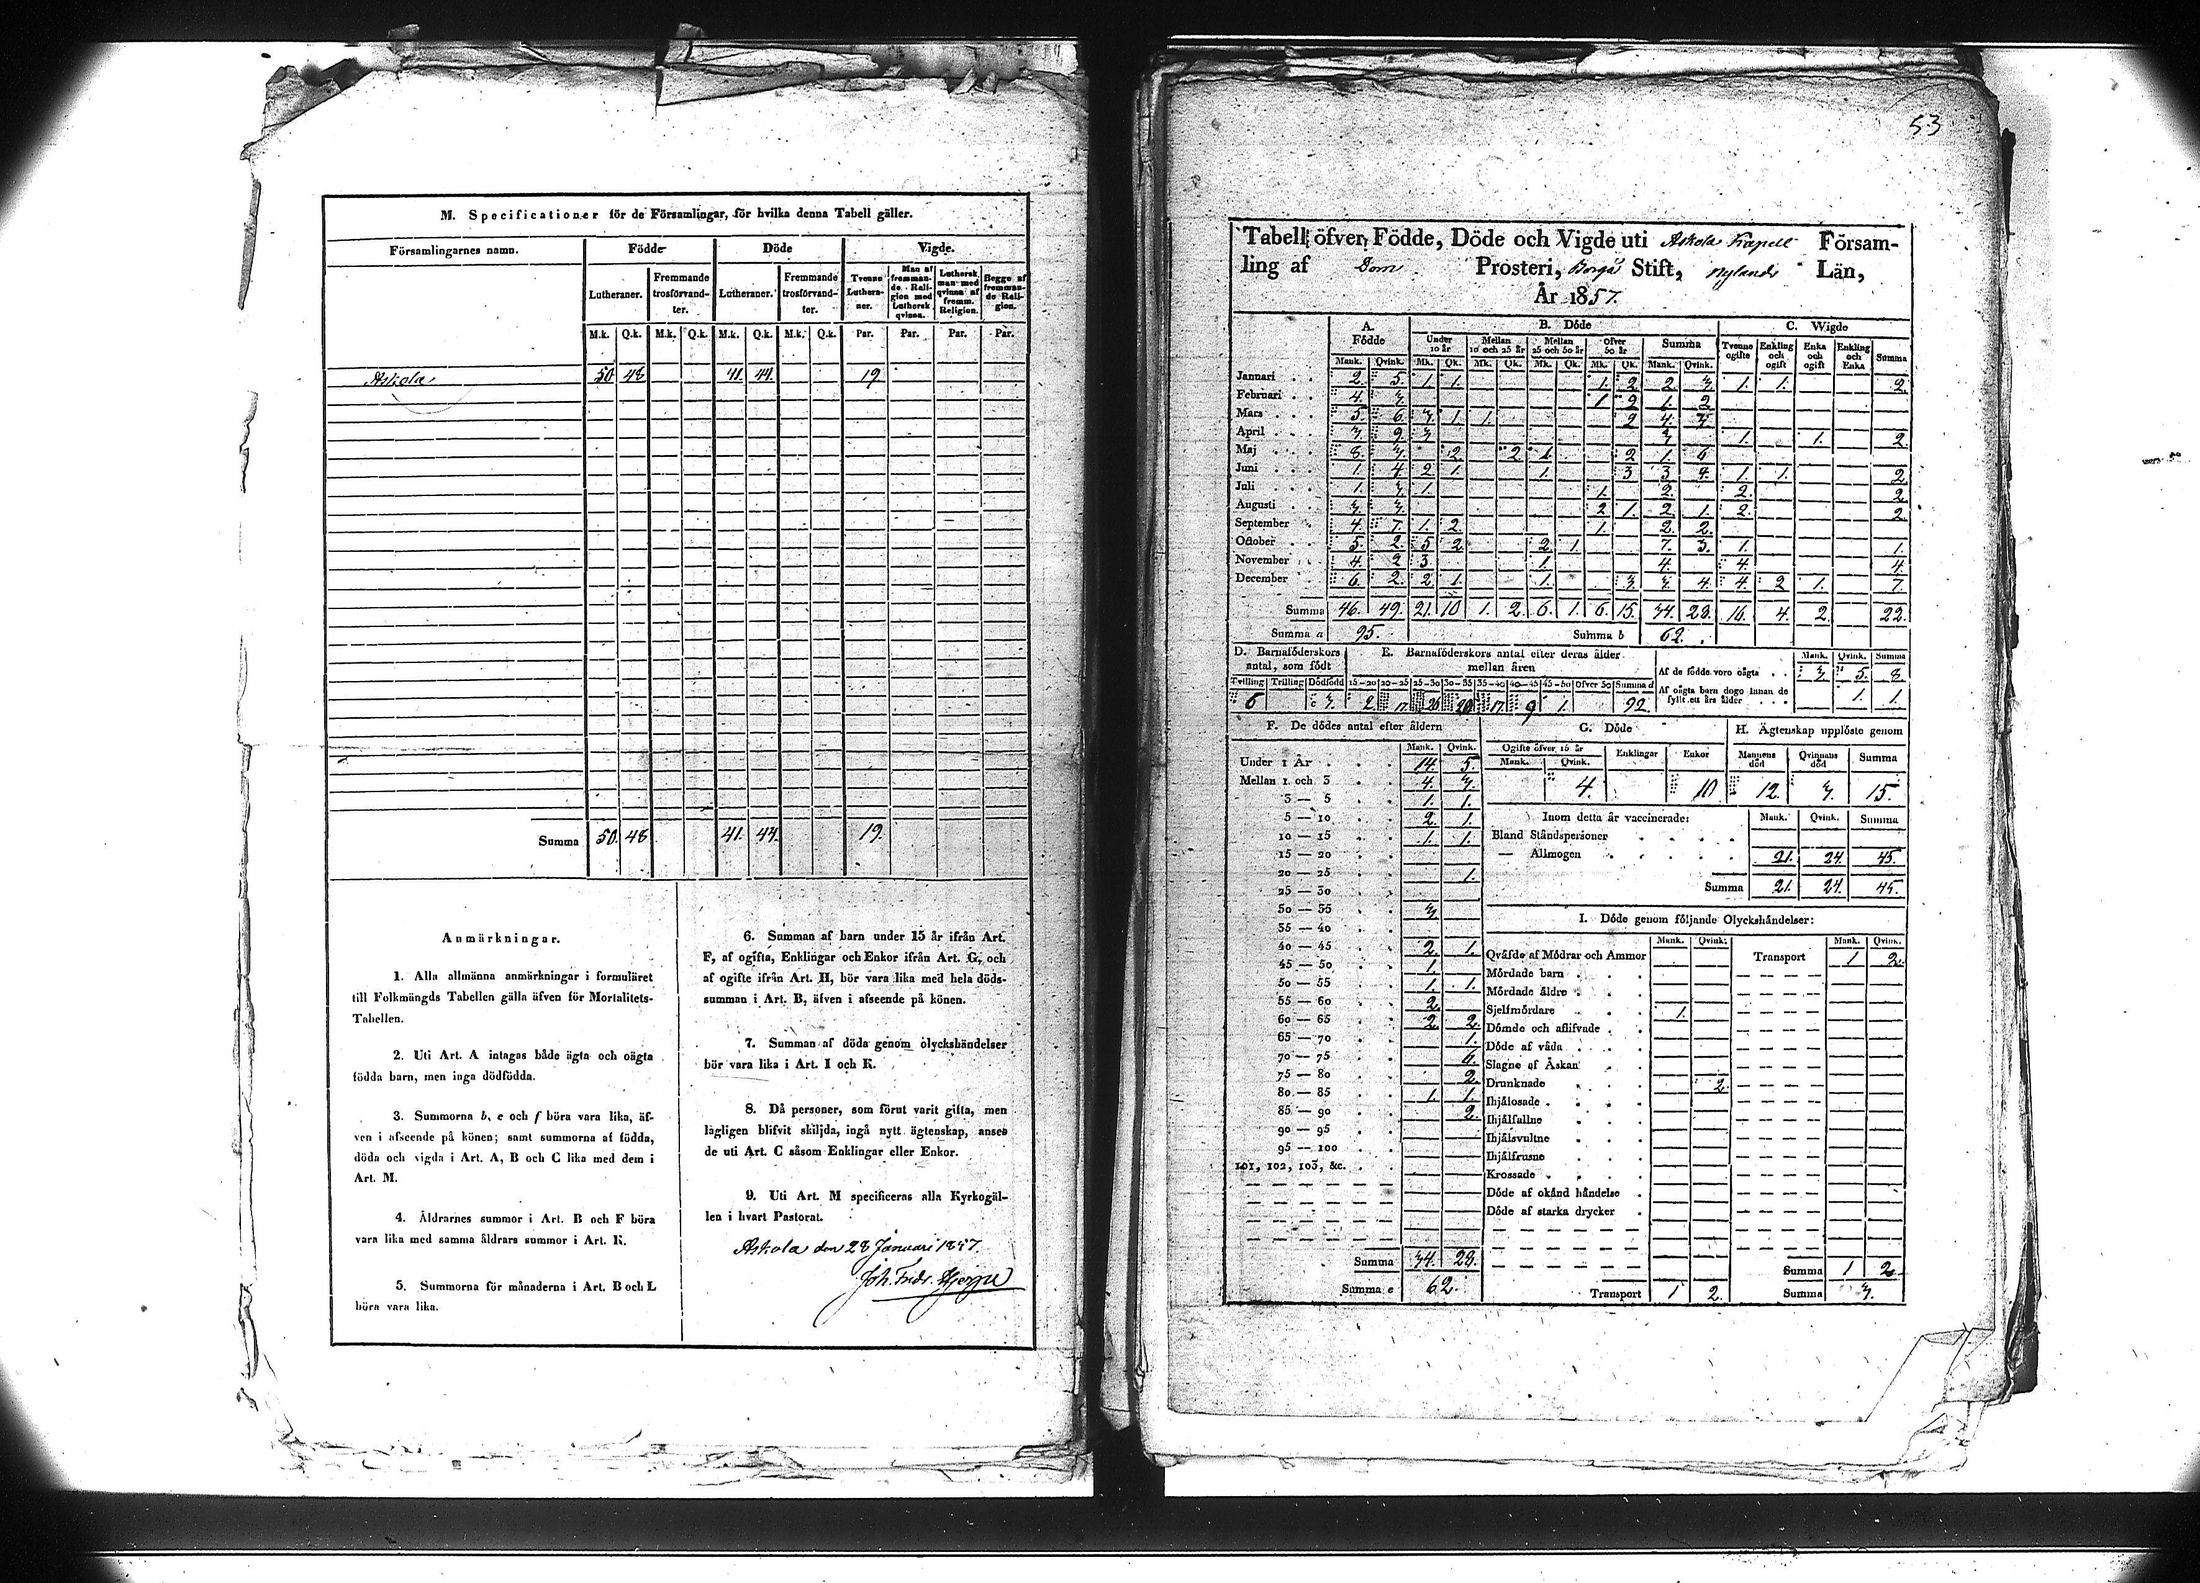 M. Specificationer för de Församlingar, för hvilka denna Tabell gäller.
Församlingarnes namn. Födde Döde Vigde.
Lutheraner. Fremmande trosförvandter. Lutheraner. Fremmande trosförvandter. Tvenne Lutheraner. Man af fremmande Religion med Luthersk qvinna. Luthersk man med qvinna af fremm. Religion. Begge af fremmande Religion.
M.k. Q.k. M.k. Q.k. M.k. Q.k. M.k. Q.k. Par. Par. Par. Par.
Askola 50 48 41. 44. 19
Summa 50. 48 41. 44. 19.
Anmärkningar.
1. Alla allmänna anmärkningar i formuläret
till Folkmängds Tabellen gälla äfven för Mortalitets-
Tabellen.
2. Uti Art. A intagas både ägta och oägta
födda barn, men inga dödfödda.
3. Summorna b, e och f böra vara lika, äf-
ven i afseende på könen; samt summorna af födda,
döda och vigda i Art. A, B och C lika med dem i
Art. M.
4. Åldrarnes summor i Art. B och F böra
vara lika med samma åldrars summor i Art. K.
5. Summorna för månaderna i Art. B och L
böra vara lika.
6. Summan af barn under 15 år ifrån Art.
F, af ogifta, Enklingar och Enkor ifrån Art. G, och
af ogifte ifrån Art. H, bör vara lika med hela döds-
summan i Art. B, äfven i afseende på könen.
7. Summan af döda genom olyckshändelser
bör vara lika i Art. I och K.
8. Då personer, som förut varit gifta, men
lagligen blifvit skiljda, ingå nytt ägtenskap, anses
de uti Art. C såsom Enklingar eller Enkor.
9. Uti Art. M specificeras alla Kyrkogäl-
len i hvart Pastorat.
Askola den 28 Januari 1857.
Joh. Fredr.
53
Tabell öfver Födde, Döde och Vigde uti Askola Kapell Försam-
ling af Dom Prosteri, Borgå Stift, Nylands Län,
År 1857.
A. Födde B. Döde C. Wigde
Under 10 år Mellan 10 och 25 år Mellan 25 och 50 år Öfver 50 år Summa Tvenne ogifte Enkling och ogift Enka och ogift Enkling och Enka Summa
Mank. Qvink. Mk. Qk. Mk. Qk. Mk. Qk. Mk. Qk. Mank. Qvink.
Januari 2. 5. 1. 1. 1. 2. 2. 3. 1. 1. 2.
Februari 4. 3. 1 2 1. 2
Mars 5. 6. 3. 1 1. 2 4.
April 3. 9. 3 3. 1. 1. 2.
Maj 8. 3. 2 2 1 2 1 6
Juni 1. 4 2 1. 1. 3 3 4. 1. 1. 2
Juli 1. 3. 1. 1. 2. 2. 2
Augusti 3. 3. 2 1. 2. 1. 2. 2
September 4. 7. 1. 2. 1. 2. 2.
October 5. 2. 5 2 2. 1. 7. 3. 1. 1.
November 4. 2 3. 1. 4. 4 4.
December 6. 2. 2 1. 1. 3. 3. 4 4. 2 1. 7.
Summa 46. 49. 21. 10 1. 2. 6. 1. 6. 15. 34. 28. 16. 4. 2. 22.
Summa a 95. Summa b 62.
D. Barnaföderskors antal, som födt
Tvilling Trilling Dödfödd
6 c 3.
E. Barnaföderskors antal efter deras ålder mellan åren
15–20 20–25 25–30 30–35 35–40 40–45 45–50 Öfver 50 Summa d
2. 17. 26 20 17. 9 1. 92.
Mank. Qvink. Summa
Af de födde voro oägta 3. 5. 8.
Af oägta barn dogo innan de fyllt ett års ålder 1. 1.
F. De dödes antal efter åldern
Mank. Qvink.
Under 1 År 14. 5
Mellan 1 och 3 4. 3.
3 — 5 1. 1.
5 — 10 2. 1.
10 — 15 1. 1.
15 — 20
20 — 25 1.
25 — 30
30 — 35 3.
35 — 40
40 — 45 2. 1.
45 — 50 1.
50 — 55 1. 1.
55 — 60 2.
60 — 65 2. 2.
65 — 70 1.
70 — 75 6.
75 — 80 2.
80 — 85 1. 1.
85 — 90 2.
90 — 95
95 — 100
101, 102, 103, &c.
Summa 34. 28.
Summa e 62.
G. Döde
Ogifte öfver 15 år Enklingar Enkor
Mank. Qvink.
4. 10
H. Ägtenskap upplöste genom
Mannens död Qvinnans död Summa
12. 3. 15.
Inom detta år vaccinerade: Mank. Qvink. Summa
Bland Ståndspersoner
— Allmogen 21. 24. 45.
Summa 21. 24. 45.
I. Döde genom följande Olyckshändelser:
Mank. Qvink. Mank. Qvink.
Qväfde af Mödrar och Ammor Transport 1 2.
Mördade barn
Mördade äldre
Sjelfmördare 1.
Dömde och aflifvade
Döde af våda
Slagne af Åskan
Drunknade 2.
Ihjälosade
Ihjälfallne
Ihjälsvultne
Ihjälfrusne
Krossade
Döde af okänd händelse
Döde af starka drycker
Summa 1 2
Transport 1 2. Summa 3.